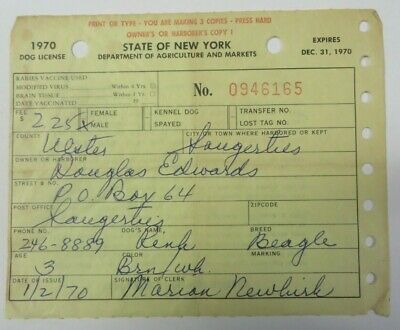 PRINT OR TYPE - YOU ARE MAKING 3 COPIES - PRESS HARD
OWNER'S OR HARBORER'S COPY 1
1970
DOG LICENSE
STATE OF NEW YORK
DEPARTMENT OF AGRICULTURE AND MARKETS
EXPIRES
DEC. 31, 1970
RABIES VACCINE USED
MODIFIED VIRUS Within 4 Yrs.
BRAIN TISSUE Within 1 Yr.
DATE VACCINATED 19
No. 0946165
FEE FEMALE KENNEL DOG TRANSFER NO.
$ 2.25 X MALE SPAYED LOST TAG NO.
COUNTY CITY OR TOWN WHERE HARBORED OR KEPT
Ulster Saugerties
OWNER OR HARBORER
Douglas Edwards
STREET & NO.
P.O. Box 64
POST OFFICE ZIPCODE
Saugerties
PHONE NO. DOG'S NAME BREED
246-8889 Beagle
AGE COLOR MARKING
3 Brn/wh.
DATE OF ISSUE SIGNATURE OF CLERK
1/2/70 Marion Newkirk